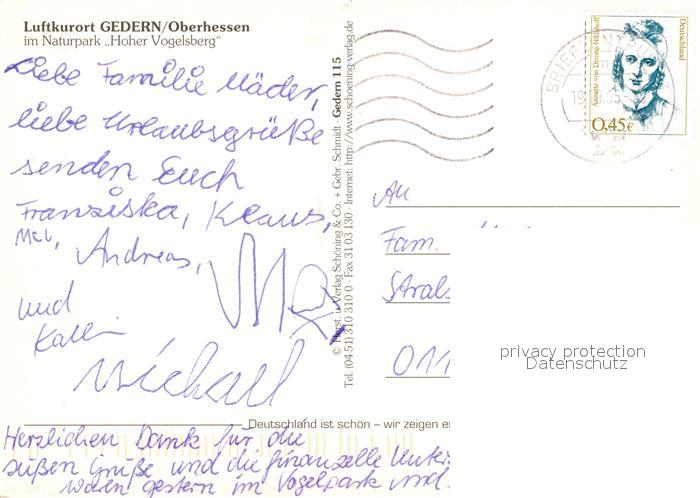 Luftkurort GEDERN/Oberhessen
im Naturpark „Hoher Vogelsberg“
Liebe Familie Mäder,
liebe Urlaubsgrüße
senden Euch
Franziska, Klaus,
Mel,
Andreas,
Max
und
Kalli
Michael
Deutschland ist schön – wir zeigen es
Herzlichen Dank für die
süßen Grüße und die finanzelle Unter
waren gestern im Vogelpark und
© Horst. u. Verlag Schöning & Co. + Gebr. Schmidt · Gedern 115
Tel. (04 51) 310 310 0 · Fax 31 03 130 · Internet: http://www.schoening-verlag.de
BRIEFZENTRUM
Annette von Droste-Hülshoff
Deutschland
0,45€
An
Fam.
Strals
011
privacy protection
Datenschutz